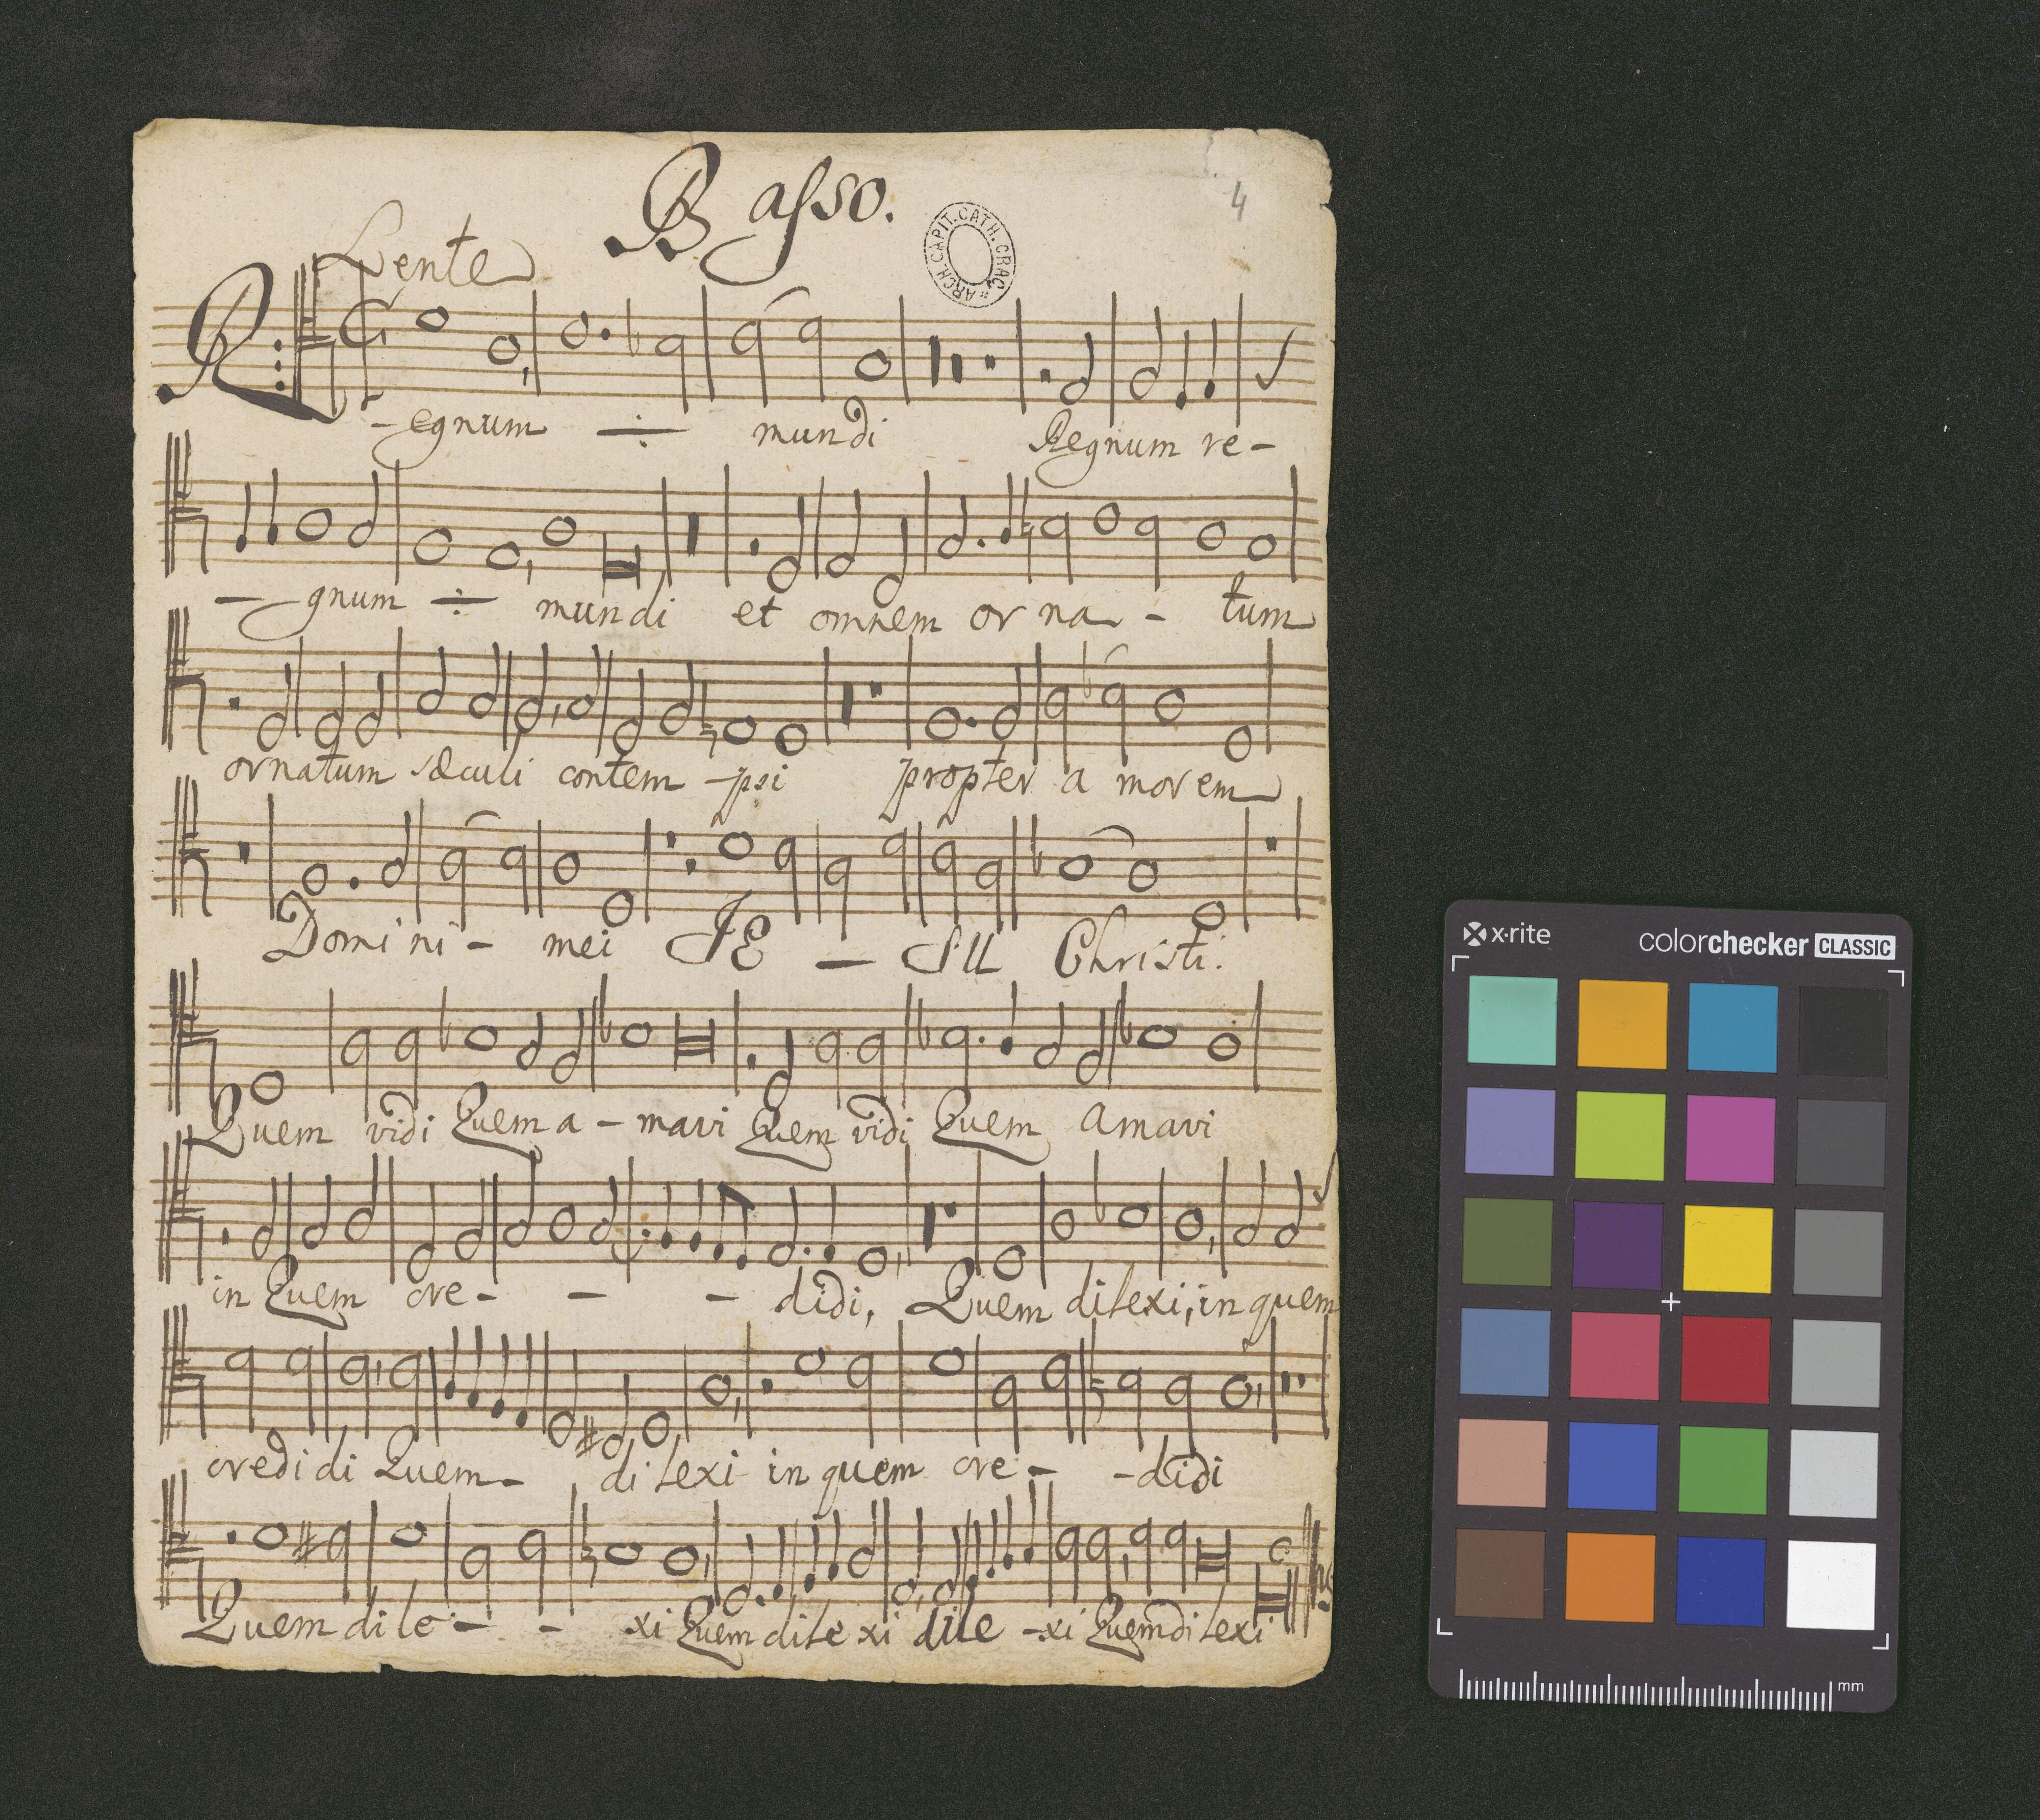 Basso.
4
ARCH. CAPIT. CATH. CRAC.
Lente
R-egnum ÷ mundi Regnum re-
- gnum ÷ mundi et omnem or na - tum
ornatum sæculi contem -psi propter a morem
Domi ni - mei JE - SU Christi.
Quem vidi Quem a - mavi Quem vidi Quem amavi
in Quem cre - - - didi, Quem dilexi, in quem
credidi Quem - dilexi in quem cre - -didi
Quem dile - - xi Quem dile xi dile -xi Quem dilexi
x-rite
colorchecker CLASSIC
mm